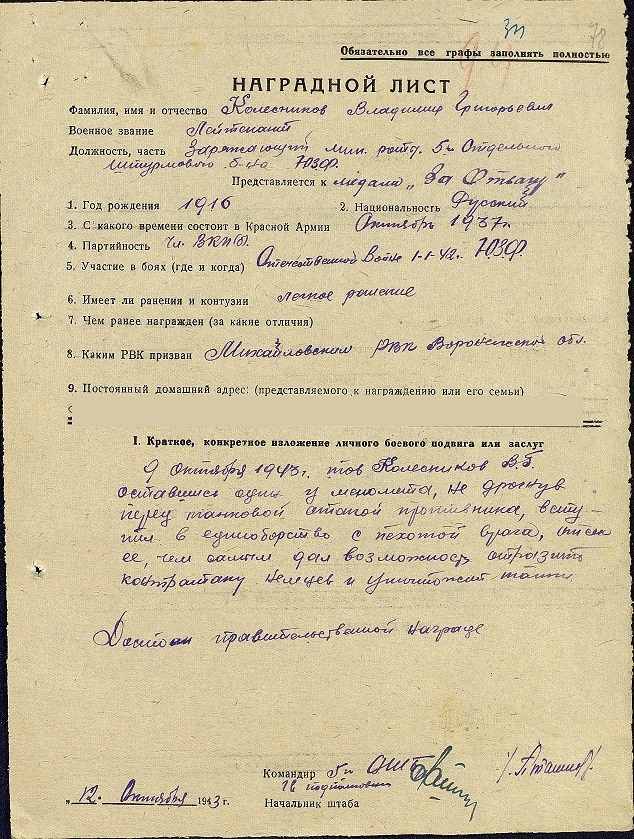 78
Обязательно все графы заполнять полностью
НАГРАДНОЙ ЛИСТ
Фамилия, имя и отчество Колесников Владимир Григорьевич
Военное звание Лейтенант
Должность, часть Заряжающий мин. роты 5го Отдельного
Штурмового б-на ЮЗФ.
Представляется к медали „За Отвагу"
1. Год рождения 1916 2. Национальность Русский
3. С какого времени состоит в Красной Армии Октябрь 1937г.
4. Партийность Чл. ВКП(б).
5. Участие в боях (где и когда) Отечественной Войне 1-1-42г. ЮЗФ.
6. Имеет ли ранения и контузии легкое ранение
7. Чем ранее награжден (за какие отличия)
8. Каким РВК призван Михайловским РВК Воронежской обл.
9. Постоянный домашний адрес: (представляемого к награждению или его семьи)
I. Краткое, конкретное изложение личного боевого подвига или заслуг
9 октября 1943г. тов Колесников В.Г.
оставшись один у миномета, не дрогнув
перед танковой атакой противника, всту-
пил в единоборство с пехотой врага, отсек
ее, чем самым дал возможность отразить
контратаку немцев и уничтожить танки
Достоин правительственной награде
Командир 5го ОШБ
Гв подполковник
„12" Октября 1943 г. Начальник штаба